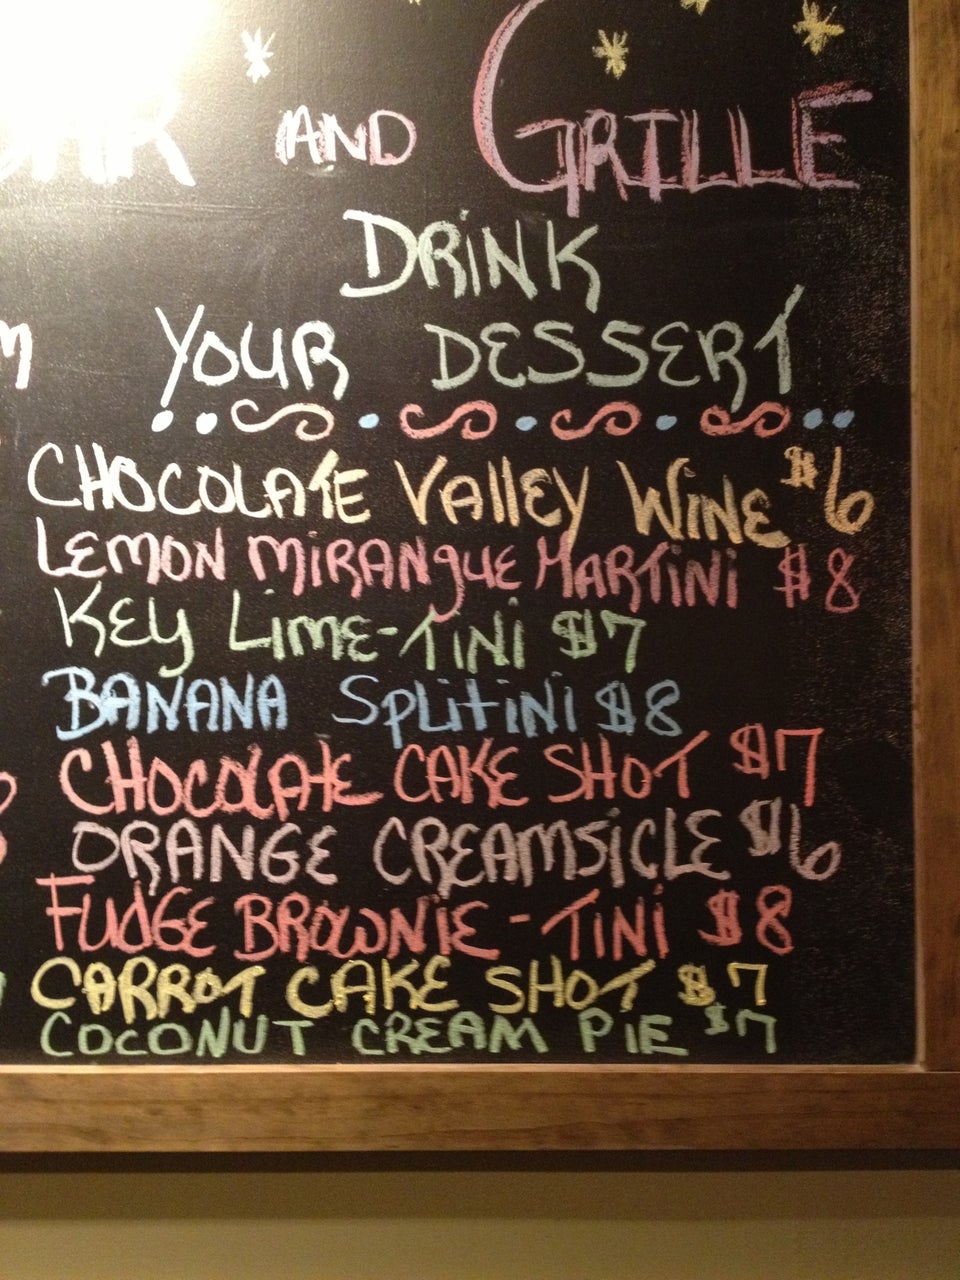 BAR AND GRILLE
DRINK
YOUR DESSERT
CHOCOLATE VALLEY WINE $6
LEMON MIRANGUE MARTINI $8
KEY LIME-TINI $7
BANANA SPLITINI $8
CHOCOLATE CAKE SHOT $7
ORANGE CREAMSICLE $6
FUDGE BROWNIE-TINI $8
CARROT CAKE SHOT $7
COCONUT CREAM PIE $7